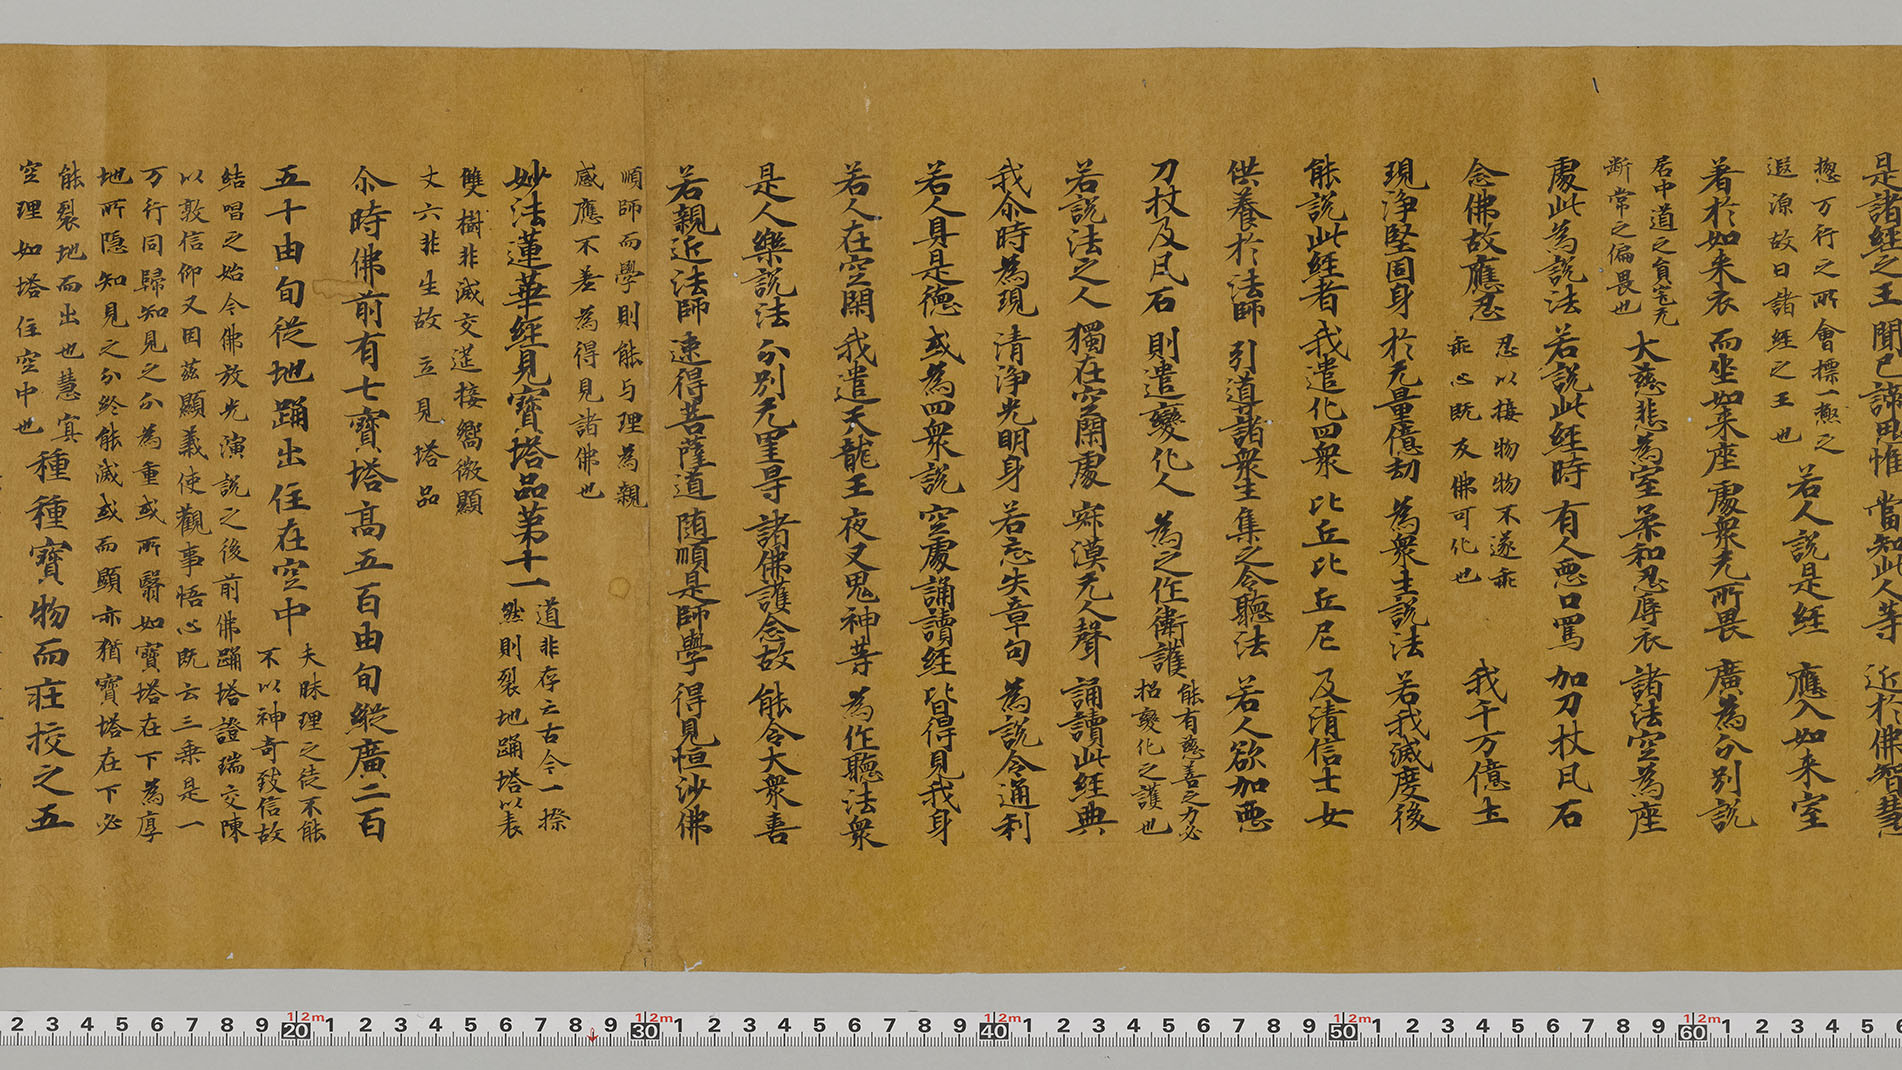 是諸經之王 聞已諦思惟 當知此人等 近於佛智慧
若人說是經 應入如來室
惣万行之所會摽一極之
遐源故曰諸經之王也
著於如來衣 而坐如來座 處衆无所畏 廣為分別說
居中道之負宅无
断常之偏畏也
大慈悲為室 柔和忍辱衣 諸法空為座
處此為說法 若說此經時 有人惡口罵 加刀杖凡石
念佛故應忍
忍以接物物不遂乖
乖心既及佛可化也
我千万億土
現淨堅固身 於无量億劫 為衆生說法 若我滅度後
能說此經者 我遣化四衆 比丘比丘尼 及清信士女
供養於法師 引導諸衆生 集之令聽法 若人欲加惡
刀杖及凡石 則遣變化人 為之作衛護
能有慈善之力必
招變化之護也
若說法之人 獨在空閑處 寂漠无人聲 誦讀此經典
我尒時為現 清淨光明身 若忘失章句 為說令通利
若人具是德 或為四衆說 空處誦讀經 皆得見我身
若人在空閑 我遣天龍王 夜叉鬼神等 為作聽法衆
是人樂說法 分別无罣导 諸佛護念故 能令大衆喜
若親近法師 速得菩薩道 随順是師學 得見恒沙佛
順師而學則能与理為親
感應不差為得見諸佛也
妙法蓮華經見寶塔品第十一
道非存亡古今一揆
然則裂地踊塔以表
雙樹非滅交莚接嚮微顯
丈六非生故立見塔品
尒時佛前有七寶塔高五百由旬縱廣二百
五十由旬從地踊出住在空中
夫昧理之徒不能
不以神奇致信故
結唱之始令佛放光演說之後前佛踊塔證瑞交陳
以敦信仰又因茲顯義使觀事悟心既云三乘是一
万行同歸知見之分為重或所翳如寶塔在下為厚
地所隱知見之分終能滅或而顯亦猶寶塔在下必
能裂地而出也慧寘
空理如塔住空中也
種種寶物而莊挍之五
2 3 4 5 6 7 8 9 20 1 2 3 4 5 6 7 8 9 30 1 2 3 4 5 6 7 8 9 40 1 2 3 4 5 6 7 8 9 50 1 2 3 4 5 6 7 8 9 60 1 2 3 4 5 6